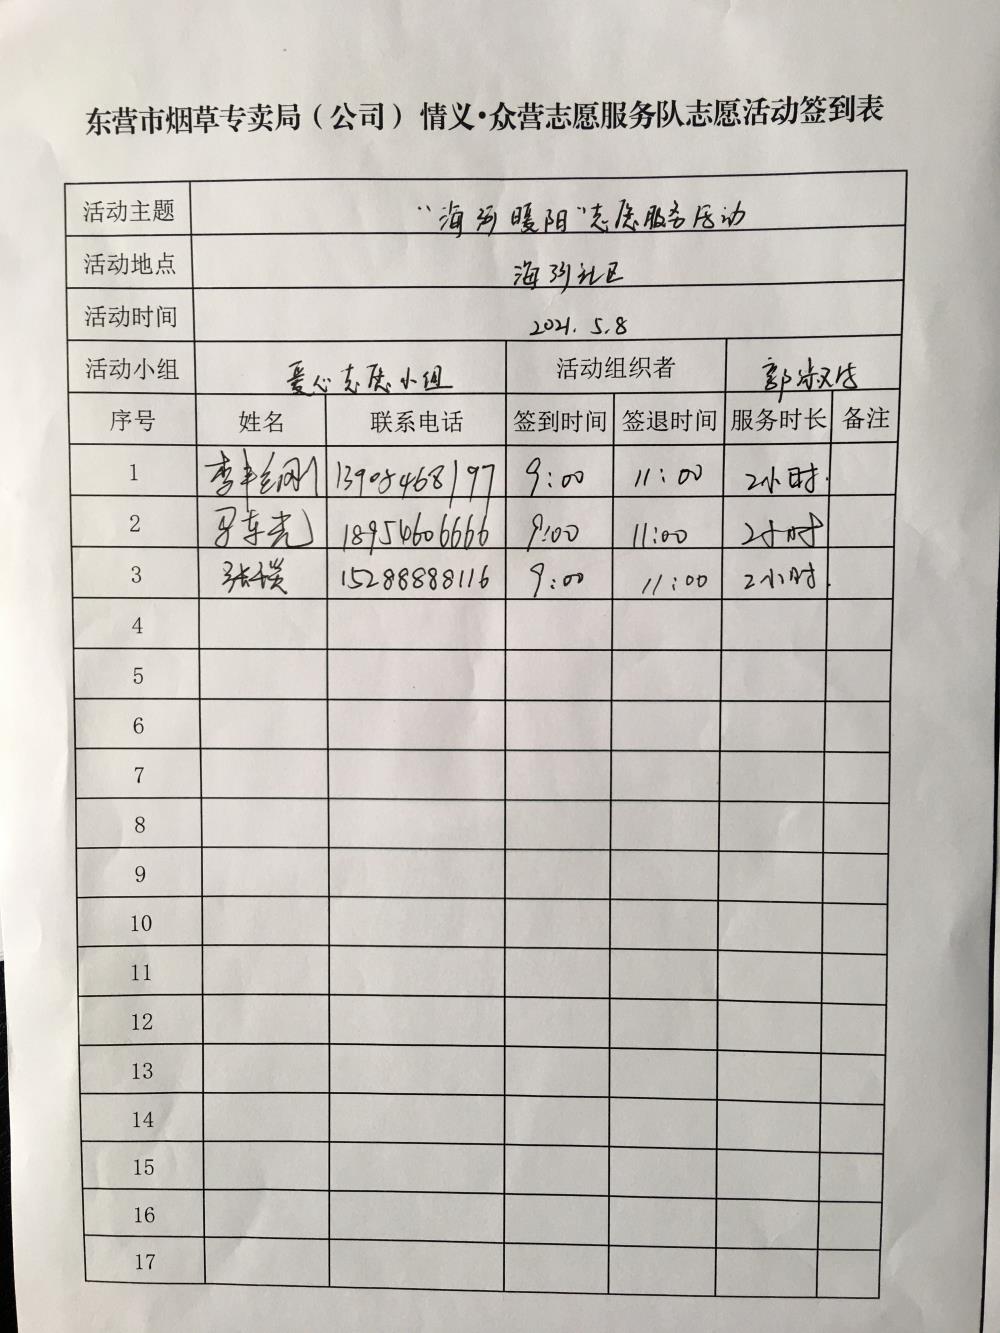 东营市烟草专卖局（公司）情义·众营志愿服务队志愿活动签到表
活动主题 “海河暖阳”志愿服务活动
活动地点 海河社区
活动时间 2021.5.8
活动小组 爱心志愿小组 活动组织者 郭
序号 姓名 联系电话 签到时间 签退时间 服务时长 备注
1 李 刚 13905468197 9:00 11:00 2小时.
2 马东光 18954606666 9:00 11:00 2小时
3 张 15288888116 9:00 11:00 2小时.
4
5
6
7
8
9
10
11
12
13
14
15
16
17